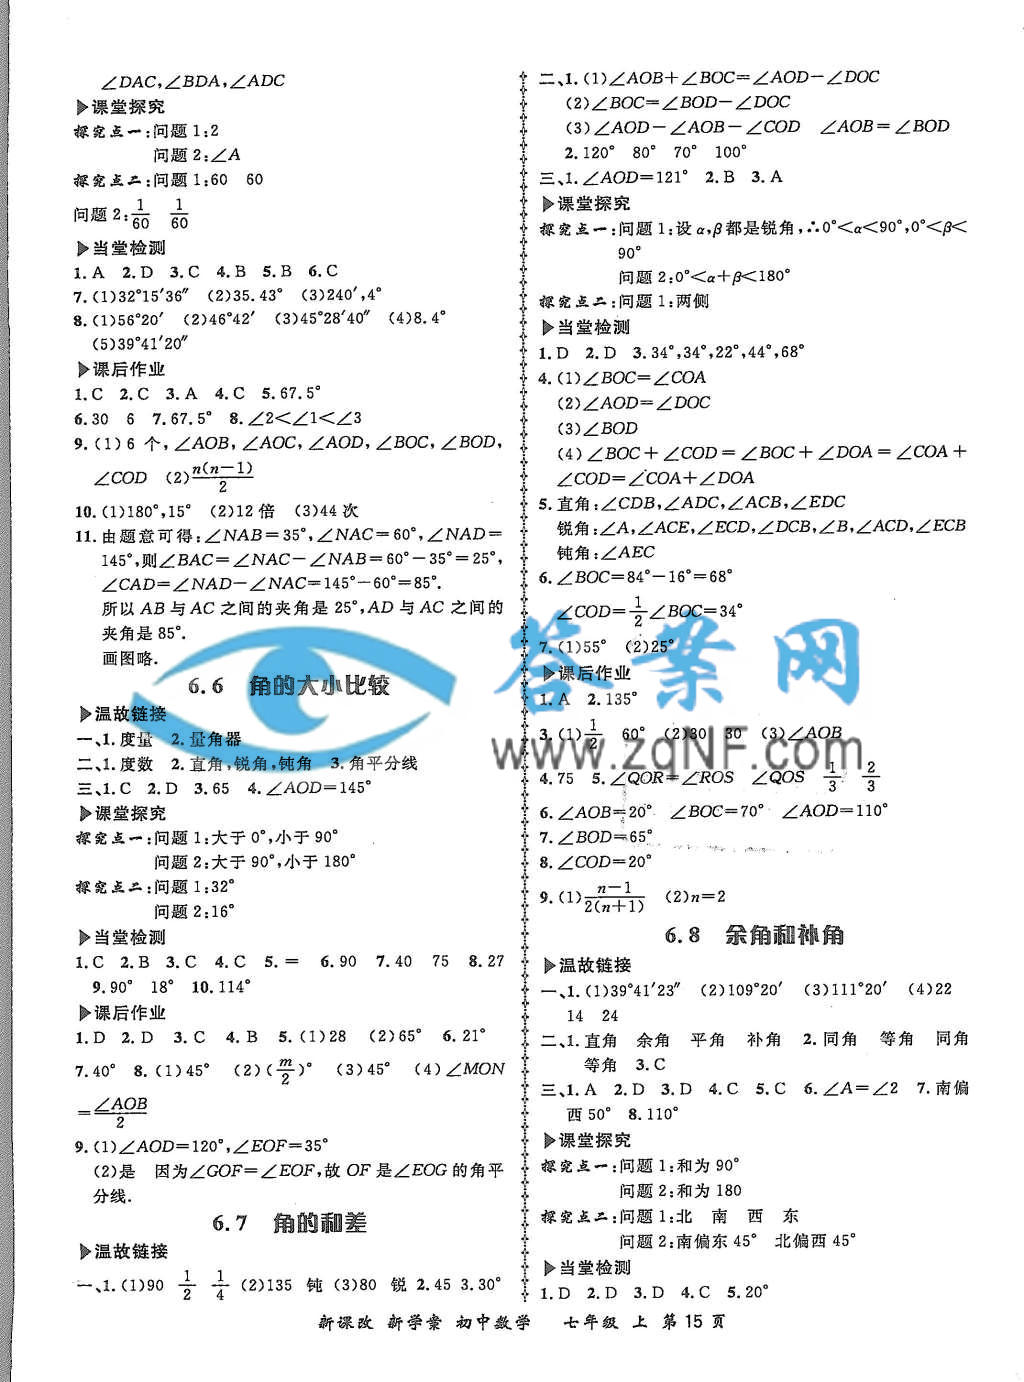 ∠DAC,∠BDA,∠ADC
▶课堂探究
探究点一:问题1:2
问题2:∠A
探究点二:问题1:60 60
问题2:1/60 1/60
▶当堂检测
1.A 2.D 3.C 4.B 5.B 6.C
7.(1)32°15′36″ (2)35.43° (3)240′,4°
8.(1)56°20′ (2)46°42′ (3)45°28′40″ (4)8.4°
(5)39°41′20″
▶课后作业
1.C 2.C 3.A 4.C 5.67.5°
6.30 6 7.67.5° 8.∠2<∠1<∠3
9.(1)6个,∠AOB,∠AOC,∠AOD,∠BOC,∠BOD,
∠COD (2)n(n-1)/2
10.(1)180°,15° (2)12倍 (3)44次
11.由题意可得:∠NAB=35°,∠NAC=60°,∠NAD=
145°,则∠BAC=∠NAC-∠NAB=60°-35°=25°,
∠CAD=∠NAD-∠NAC=145°-60°=85°.
所以AB与AC之间的夹角是25°,AD与AC之间的
夹角是85°.
画图略.
6.6 角的大小比较
▶温故链接
一、1.度量 2.量角器
二、1.度数 2.直角,锐角,钝角 3.角平分线
三、1.C 2.D 3.65 4.∠AOD=145°
▶课堂探究
探究点一:问题1:大于0°,小于90°
问题2:大于90°,小于180°
探究点二:问题1:32°
问题2:16°
▶当堂检测
1.C 2.B 3.C 4.C 5.= 6.90 7.40 75 8.27
9.90° 18° 10.114°
▶课后作业
1.D 2.D 3.C 4.B 5.(1)28 (2)65° 6.21°
7.40° 8.(1)45° (2)(m/2)° (3)45° (4)∠MON
=∠AOB/2
9.(1)∠AOD=120°,∠EOF=35°
(2)是 因为∠GOF=∠EOF,故OF是∠EOG的角平
分线.
6.7 角的和差
▶温故链接
一、1.(1)90 1/2 1/4 (2)135 钝 (3)80 锐 2.45 3.30°
二、1.(1)∠AOB+∠BOC=∠AOD-∠DOC
(2)∠BOC=∠BOD-∠DOC
(3)∠AOD-∠AOB-∠COD ∠AOB=∠BOD
2.120° 80° 70° 100°
三、1.∠AOD=121° 2.B 3.A
▶课堂探究
探究点一:问题1:设α,β都是锐角,∴0°<α<90°,0°<β<
90°
问题2:0°<α+β<180°
探究点二:问题1:两侧
▶当堂检测
1.D 2.D 3.34°,34°,22°,44°,68°
4.(1)∠BOC=∠COA
(2)∠AOD=∠DOC
(3)∠BOD
(4)∠BOC+∠COD=∠BOC+∠DOA=∠COA+
∠COD=∠COA+∠DOA
5.直角:∠CDB,∠ADC,∠ACB,∠EDC
锐角:∠A,∠ACE,∠ECD,∠DCB,∠B,∠ACD,∠ECB
钝角:∠AEC
6.∠BOC=84°-16°=68°
∠COD=1/2∠BOC=34°
7.(1)55° (2)25°
答案网
▶课后作业
1.A 2.135°
3.(1)1/2 60° (2)30 30 (3)∠AOB
www.zqNF.com
4.75 5.∠QOR=∠ROS ∠QOS 1/3 2/3
6.∠AOB=20° ∠BOC=70° ∠AOD=110°
7.∠BOD=65°
8.∠COD=20°
9.(1)n-1/2(n+1) (2)n=2
6.8 余角和补角
▶温故链接
一、1.(1)39°41′23″ (2)109°20′ (3)111°20′ (4)22
14 24
二、1.直角 余角 平角 补角 2.同角 等角 同角
等角 3.C
三、1.A 2.D 3.D 4.C 5.C 6.∠A=∠2 7.南偏
西50° 8.110°
▶课堂探究
探究点一:问题1:和为90°
问题2:和为180
探究点二:问题1:北 南 西 东
问题2:南偏东45° 北偏西45°
▶当堂检测
1.D 2.D 3.C 4.C 5.20°
新课改 新学案 初中数学 七年级 上 第15页